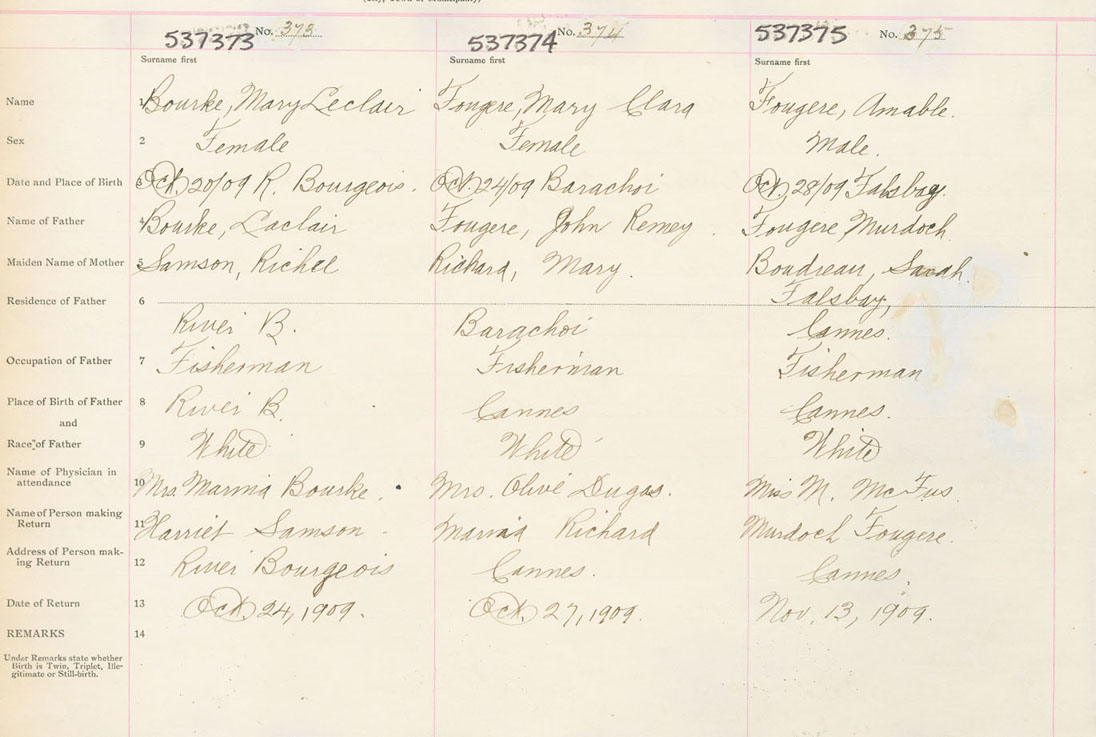 537373 No. 373 537374 No. 374 537375 No. 375
Surname first Surname first Surname first
Name 1 Bourke, Mary Leclair Fougere, Mary Clara Fougere, Amable.
Sex 2 Female Female Male.
Date and Place of Birth 3 Oct. 20/09 R. Bourgeois. Oct. 24/09 Barachoi Oct. 28/09 Falsbay.
Name of Father 4 Bourke, Laclair Fougere, John Remey. Fougere, Murdoch
Maiden Name of Mother 5 Samson, Richel Richard, Mary. Boudreau, Sarah.
Falsbay,
Residence of Father 6 River B. Barachoi Cannes.
Occupation of Father 7 Fisherman Fisherman Fisherman
Place of Birth of Father 8 River B. Cannes Cannes.
and
Race of Father 9 White White White
Name of Physician in
attendance 10 Mrs. Marina Bourke. Mrs. Olive Dugas. Miss M.
Name of Person making
Return 11 Harriet Samson. Richard Murdoch Fougere.
Address of Person mak-
ing Return 12 River Bourgeois Cannes. Cannes.
Date of Return 13 Oct. 24, 1909. Oct. 27, 1909. Nov. 13, 1909.
REMARKS 14
Under Remarks state whether
Birth is Twin, Triplet, Ille-
gitimate or Still-birth.